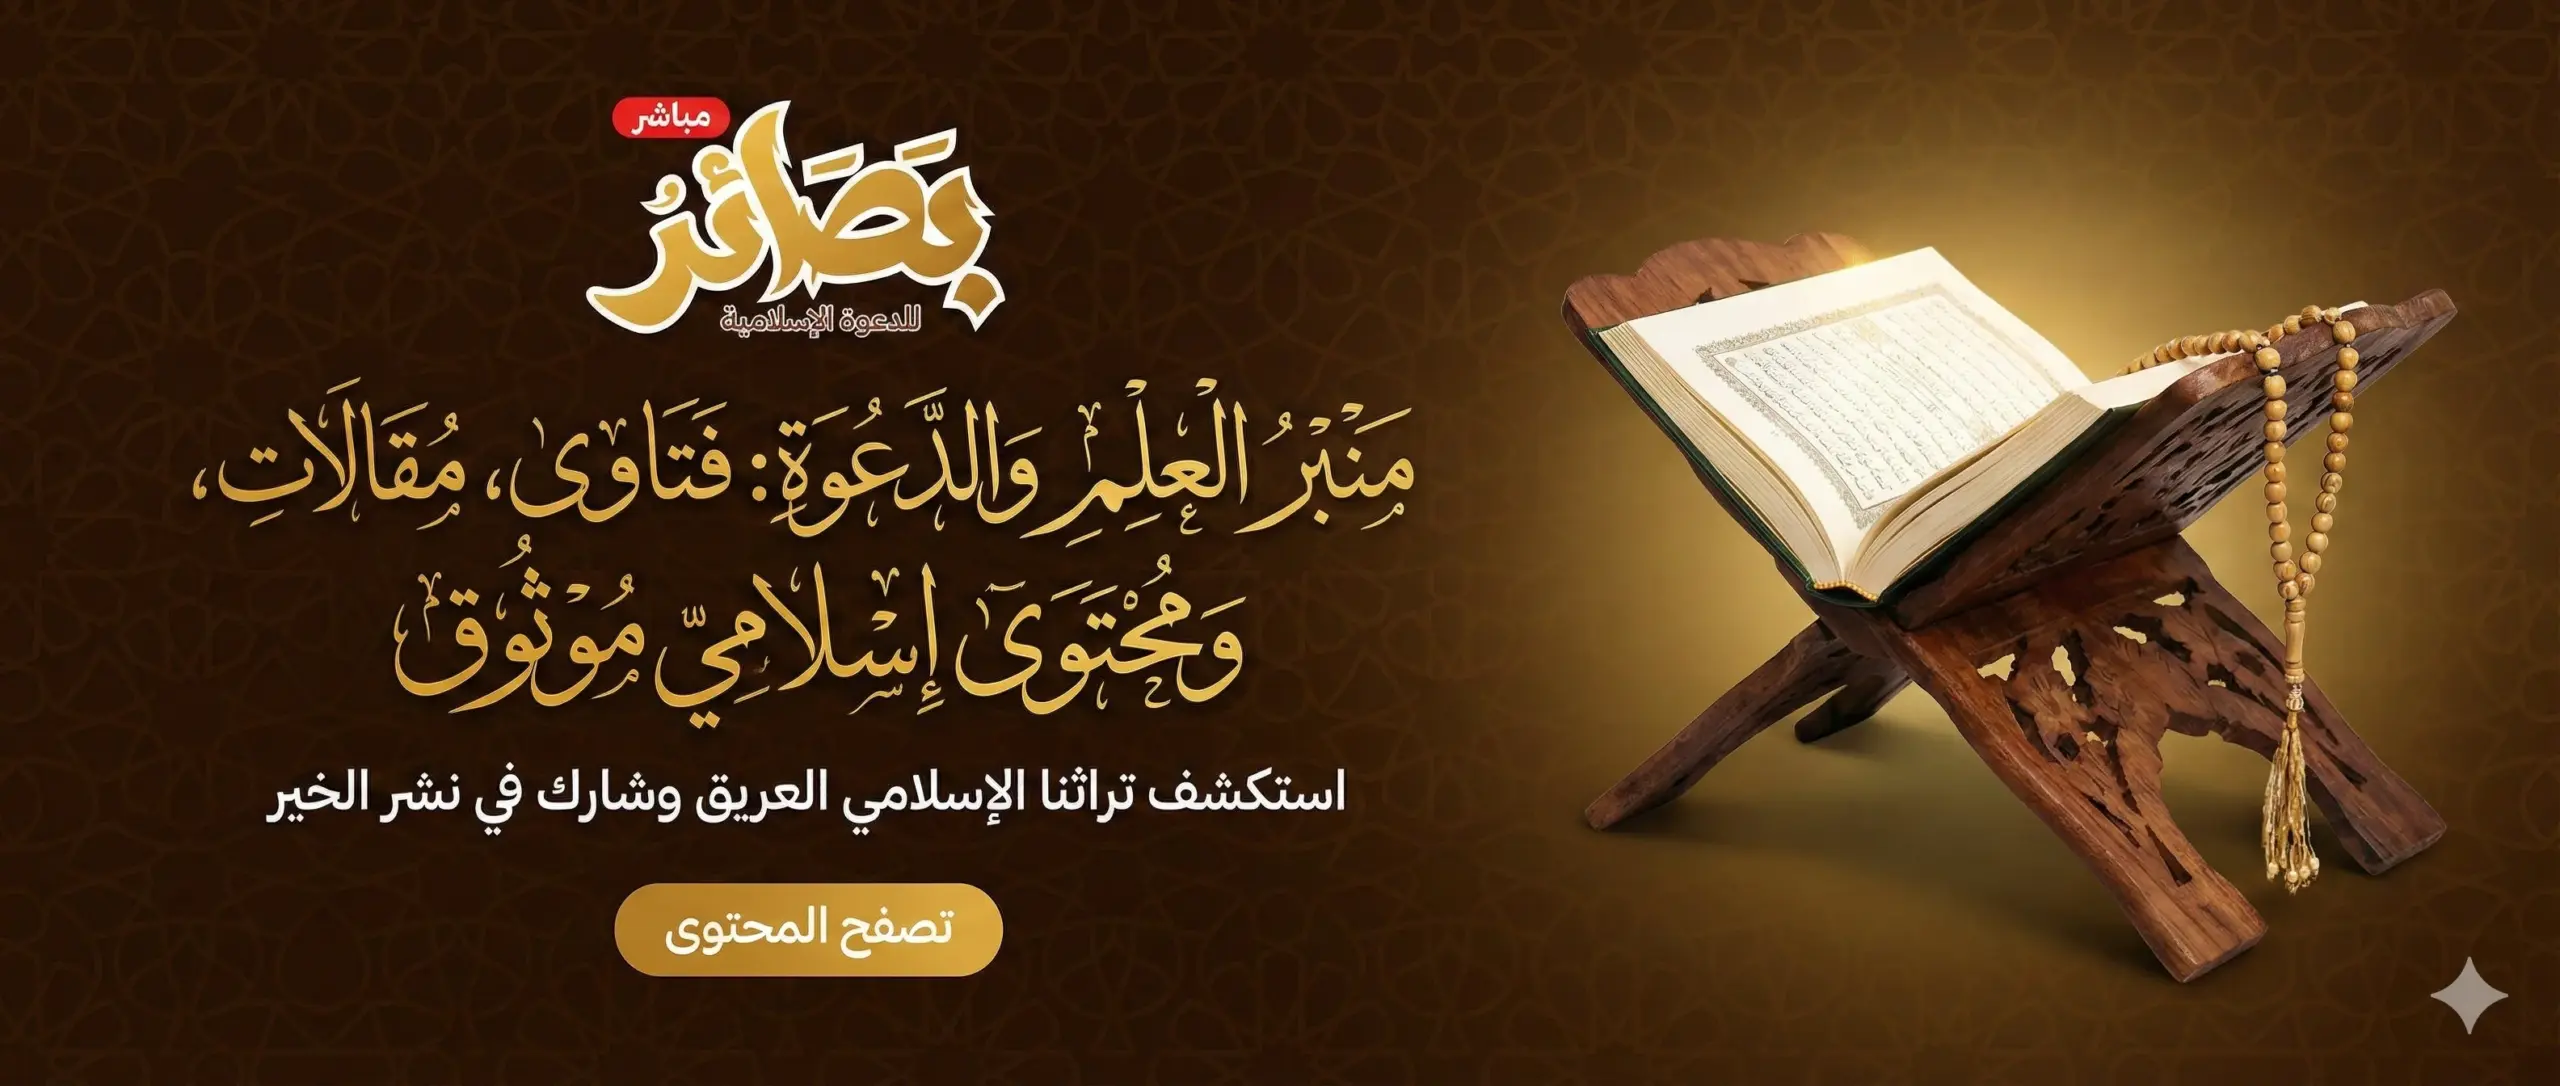 مباشر
بَصَائِرُ
للدعوة الإسلامية
مَنْبَرُ الْعِلْمِ وَالدَّعُوَةِ: فَتَاوى، مُقَالَاتِ،
وَمُحْتَوَى إِسْلامِيّ مُوْثُوُق
استكشف تراثنا الإسلامي العريق وشارك في نشر الخير
تصفح المحتوى